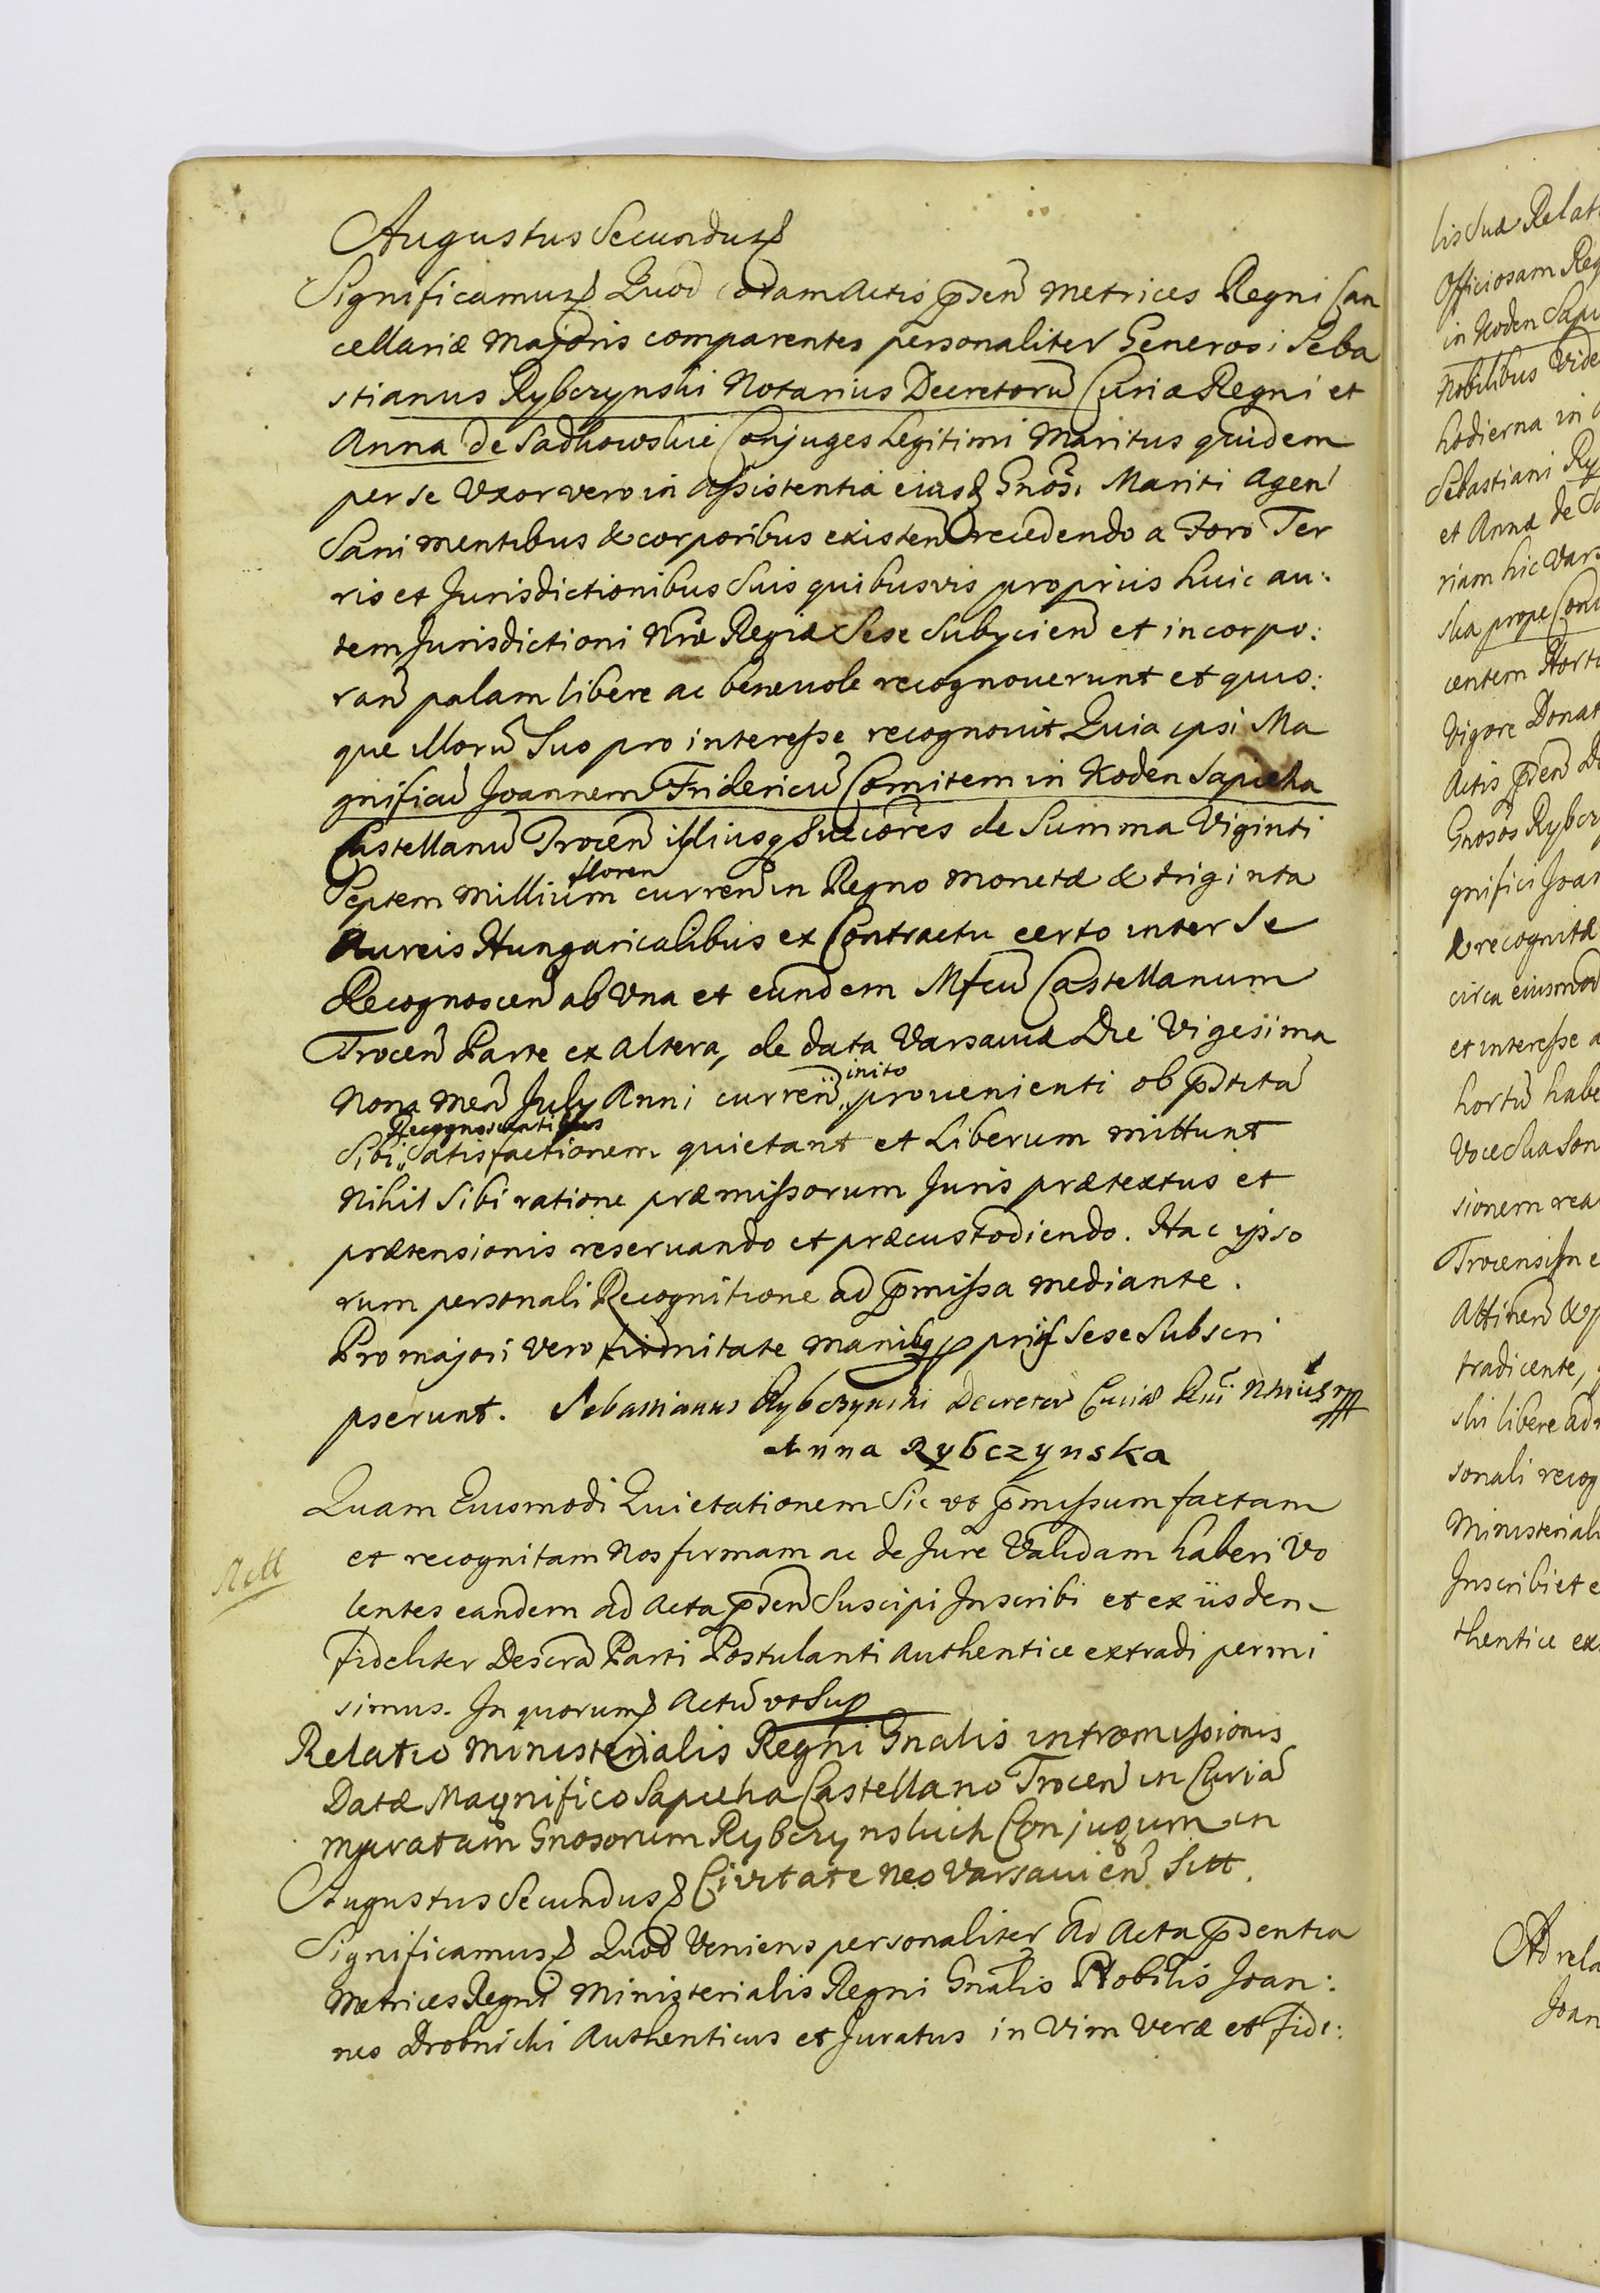 Augustus Secundus
Significamus Quod coram Actis p̄sen̄ Metrices Regni Can
cellariæ Majoris comparentes personaliter Generosi Seba
stianus Rybczynski Notarius Decretorū Curiæ Regni et
Anna de Sadkowskie Conjuges Legitimi Maritus quidem
per se Uxor vero in Assistentia eiusd Gnosi Mariti Agen
Sani mentibus & corporibus existen̄ recedendo a Foro Ter
ris et Jurisdictionibus Suis quibusvis proprüs huic au:
tem Jurisdictioni Nrã Regiæ Sese Subycien̄ et incorpo:
ran̄ palam libere ac beneuole recognouerunt et quis:
que illorū Suo pro interesse recognouit Quia ipsi Ma
gnificū Joannem Fridericū Comitem in Koden Sapieha
Castellanū Trocen̄ illiusq Succõres de Summa Viginti
Septem Millium floren curren̄ in Regno Monetæ & triginta
Aureis Hungaricalibus ex Contractu certo inter Se
Recognoscen̄ ab Una et eundem Mfcū Castellanum
Trocen̄ Parte ex altera, de data Varsaviæ Die Vigesima
Nona Men̄ July Anni curren̄ inito prouenienti ob p̄stitã
Sibi Recognoscentibus Satisfactionem quietant et Liberum mittunt
Nihil Sibi ratione præmissorum Juris prætextus et
prætensionis reseruando et præcustodiendo. Hac ipso
rum personali Recognitione ad p̄missa mediante.
Pro majori vero firmitate manibq prijs sese Subscri
pserunt. Sebastianus Rybczynski Decretor Curiæ Rni Nrius mpp
Anna Rybczynska
Quam Eiusmodi Quietationem Sic vt p̄missum factam
et recognitam Nos firmam ac de Jure Validam haberi Vo
lentes eandem ad Acta p̄sen̄ Suscipi Inscribi et ex iisdem
fideliter Descrã Parti Postulanti Authentice extradi permi
simus. In quorum Actū vt Sup
Relatio Ministerialis Regni Gnalis intromissionis
Datæ Magnifico Sapieha Castellano Trocen̄ in Curiã
muratam Gnosorum Rybczynskich Conjugum in
Civitate Neo Varsavien̄ Sitt.
Augustus Secundus
Significamus Quod Veniens personaliter Ad Acta p̄sentia
Metrices Regni Ministerialis Regni Gnalis Nobilis Joan:
nes Drobnicki Authenticus et Juratus in Vim Veræ et fide:
lis Suæ Relati
Officiosam Reg
in Koden Sapi
Nobilibus Vide
hodierna in
Sebastiani Ry
et Annæ de Sa
riam hic Vars
ska prope Con
centem Hort
Vigore Donat
Actis p̄sen̄ D
Gnosos Rybcz
gnifici Joan
& recognitæ
circa eiusmod
et interesse a
hortū habe
sionem rea
Trocensi
Attinen̄ & p
tradicente,
ski libere ad
sonali recog
Ministeriali
Inscribi et e
thentice ex
Ad rela
Joan